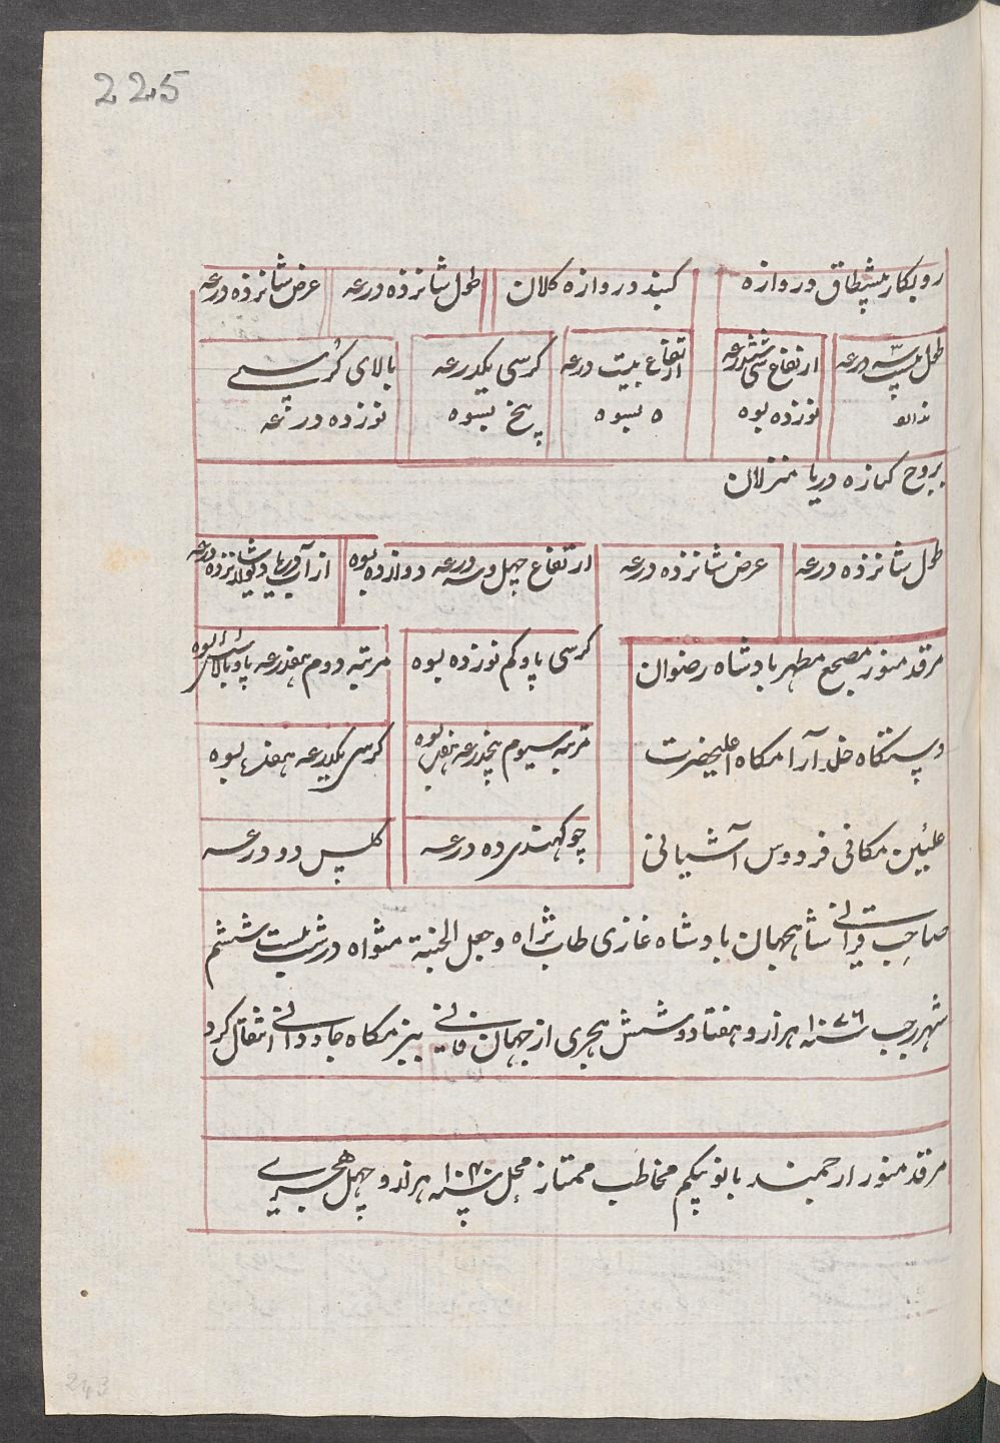 225
روبکار پیشطاق دروازه
کنبذ دروازه کلان
طول شانزده درعه
عرض شانزده درعه
طول بیست و سه درعه
ارتفاع سی و شش درعه
نوزده بسوه
ارتفاع بیست درعه
۵ بسوه
کرسی یکدرعه
پنج بسوه
بالای کرسی
نوزده درعه
بروج کناره دریا منزلان
طول شانزده درعه
عرض شانزده درعه
ارتفاع چهل و سه درعه دوازده بسوه
مرقد منور مضجع مطهر بادشاه رضوان
دستکاه خلد آرامکاه اعلیحضرت
علیین مکانی فردوس آشیانی
کرسی پاو کم نوزده بسوه
مرتبه دوم هفدرعه پاو بالا
مرتبه سیوم پنجدرعه هفده بسوه
کرسی یکدرعه هفده بسوه
چوکهندی ده درعه
کلس دو درعه
صاحب قرانی شاهجهان بادشاه غازی طاب ثراه و جعل الجنة مثواه در شب بیست ششم
شهر رجب سنه ۱۰۷۶ هزار و هفتاد و شش هجری از جهان فانی ببزمکاه جاودانی انتقال کرد
مرقد منور ارجمند بانو بیکم مخاطب ممتاز محل سنه ۱۰۴۰ هزار و چهل هجری
243